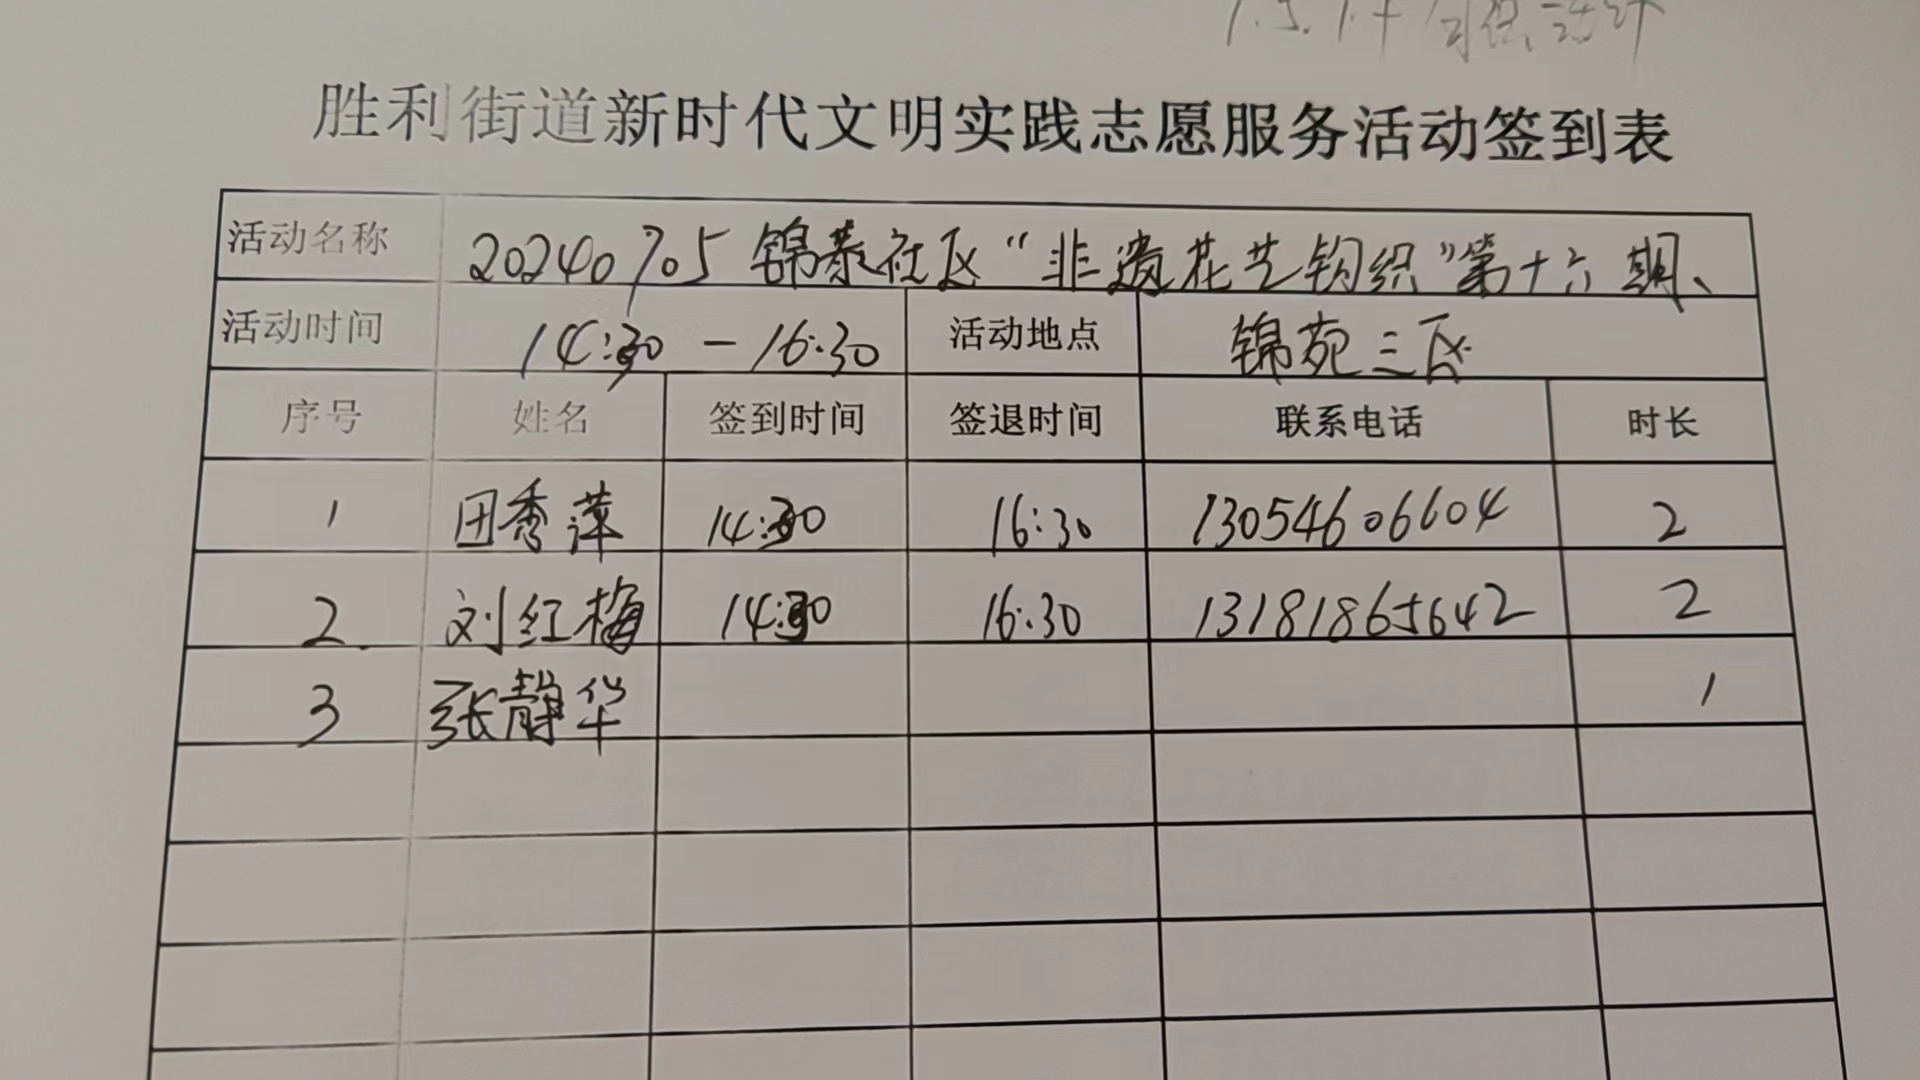 胜利街道新时代文明实践志愿服务活动签到表
活动名称 20240705 锦泰社区“非遗花艺钩织”第十六期、
活动时间 14:30 - 16:30 活动地点 锦苑三区
序号 姓名 签到时间 签退时间 联系电话 时长
1 田秀萍 14:30 16:30 13054606604 2
2 刘红梅 14:30 16:30 13181865642 2
3 张静华 1